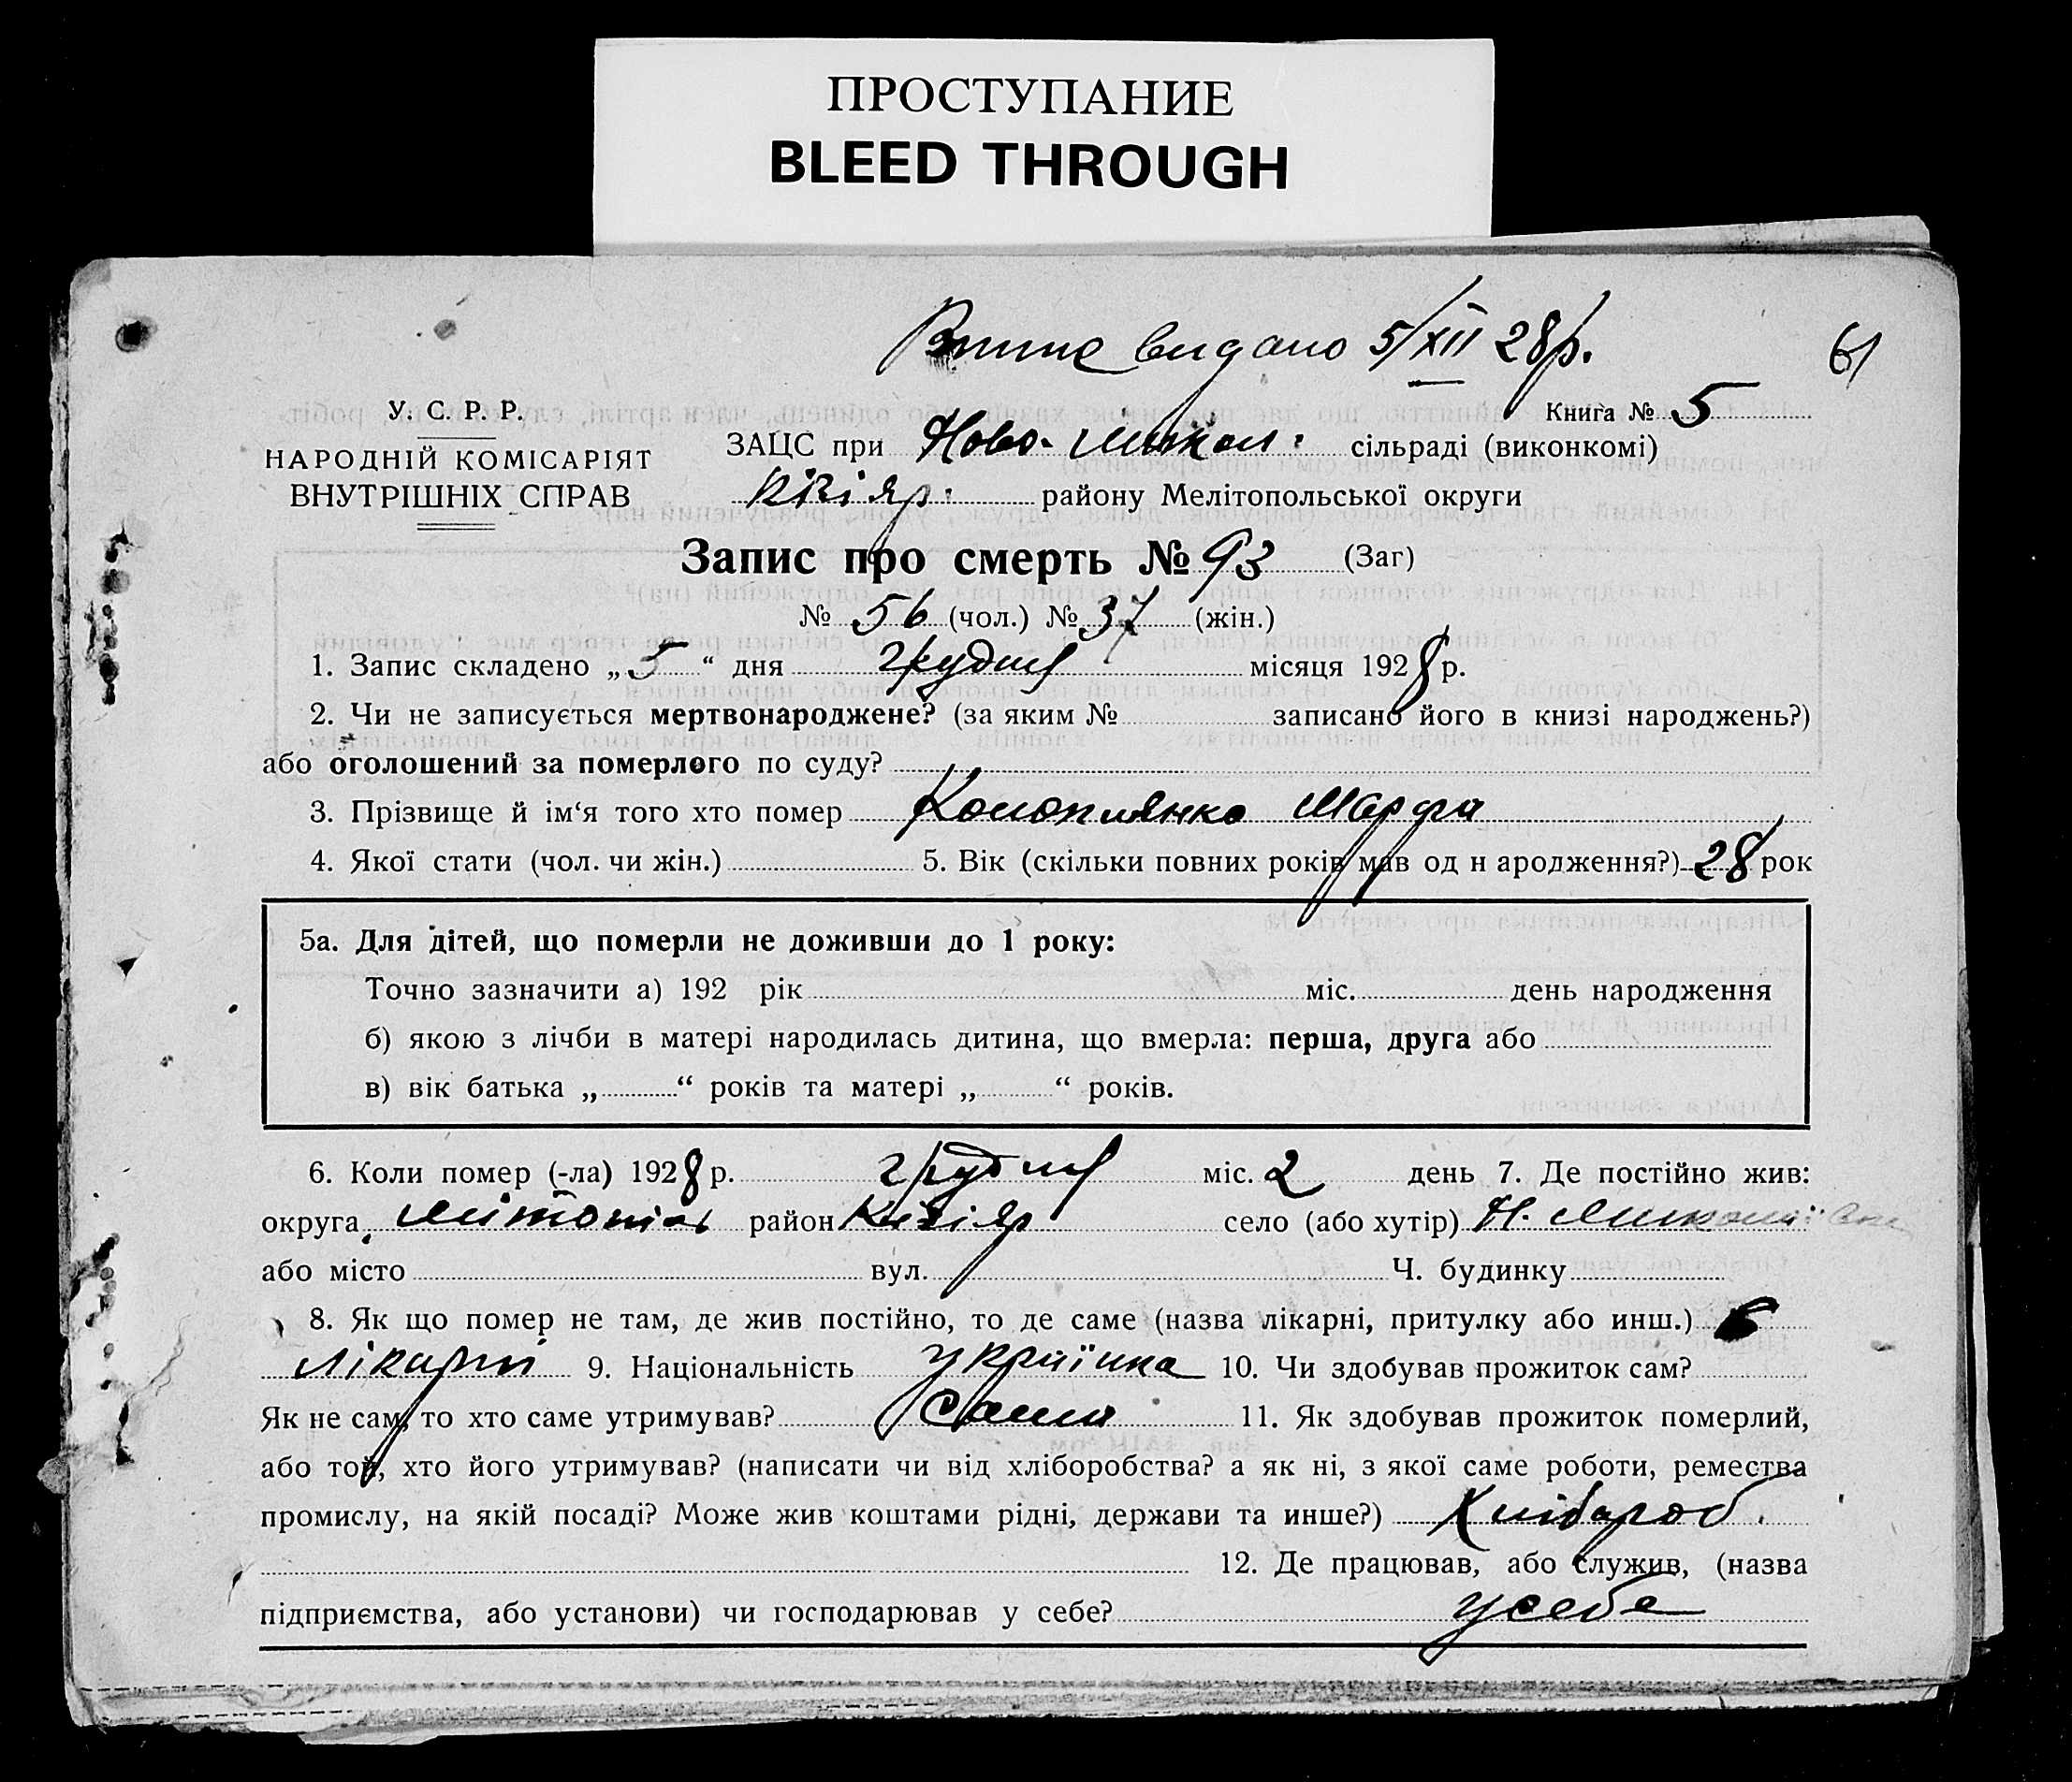 ПРОСТУПАНИЕ
BLEED THROUGH
видано 5/XII 28р.
61
Книга № 5
У. С. Р. Р.
НАРОДНІЙ КОМІСАРІЯТ
ВНУТРІШНІХ СПРАВ
ЗАЦС при Ново-Микол. сільраді (виконкомі)
Кізіяр. району Мелітопольської округи
Запис про смерть № 93 (Заг)
№ 56 (чол.) № 37 (жін.)
1. Запис складено „5“ дня грудня місяця 1928 р.
2. Чи не записується мертвонароджене? (за яким № записано його в книзі народжень?)
або оголошений за померлого по суду?
3. Прізвище й ім‘я того хто помер Конопляненко Марфа
4. Якої стати (чол. чи жін.) 5. Вік (скільки повних років мав од н ародження?) 28 рок
5а. Для дітей, що померли не доживши до 1 року:
Точно зазначити а) 192 рік міс. день народження
б) якою з лічби в матері народилась дитина, що вмерла: перша, друга або
в) вік батька „ “ років та матері „ “ років.
6. Коли помер (-ла) 1928 р. грудня міс. 2 день 7. Де постійно жив:
округа район Кізіяр село (або хутір) Н. Миколаївка
або місто вул. Ч. будинку
8. Як що помер не там, де жив постійно, то де саме (назва лікарні, притулку або инш.) в
лікарні 9. Національність українка 10. Чи здобував прожиток сам?
Як не сам, то хто саме утримував? Сама 11. Як здобував прожиток померлий,
або той, хто його утримував? (написати чи від хліборобства? а як ні, з якої саме роботи, ремества
промислу, на якій посаді? Може жив коштами рідні, держави та инше?) Хлібороб.
12. Де працював, або служив, (назва
підприємства, або установи) чи господарював у себе? у себе